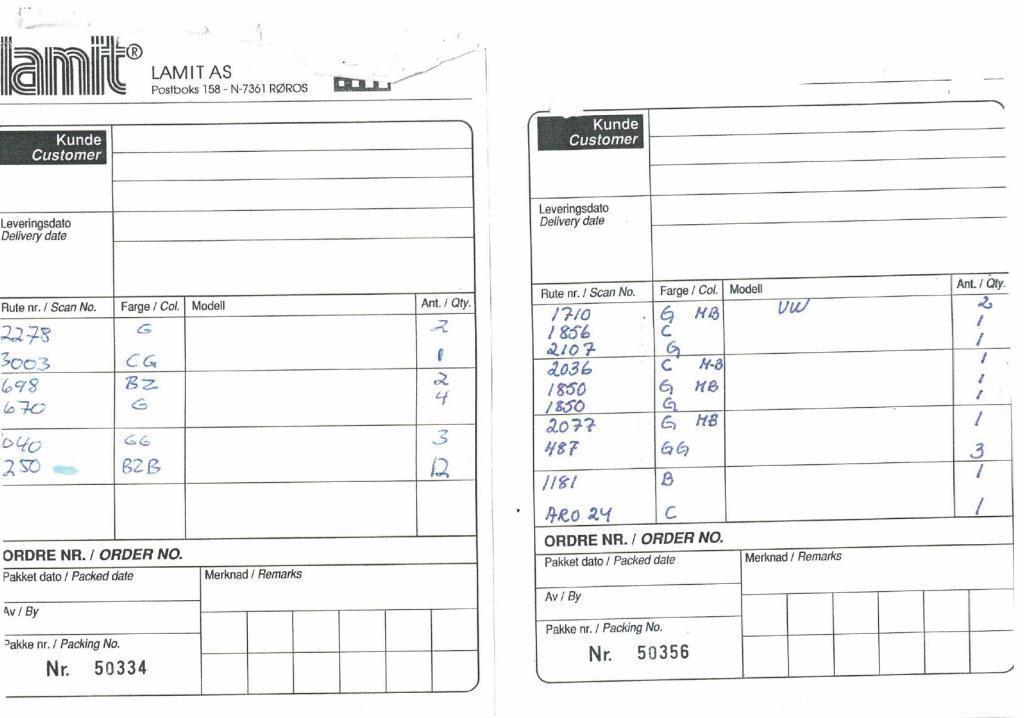 lamit®
LAMIT AS
Postboks 158 - N-7361 RØROS
Kunde
Customer
Leveringsdato
Delivery date
Rute nr. / Scan No. Farge / Col. Modell Ant. / Qty.
2278 G 2
3003 CG 1
698 BZ 2
670 G 4
040 GG 3
250 BZB 12
ORDRE NR. / ORDER NO.
Pakket dato / Packed date Merknad / Remarks
Av / By
Pakke nr. / Packing No.
Nr. 50334
Kunde
Customer
Leveringsdato
Delivery date
Rute nr. / Scan No. Farge / Col. Modell Ant. / Qty.
1710 G MB VW 2
1856 C 1
2107 G 1
2036 C M-B 1
1850 G MB 1
1850 G 1
2077 G MB 1
487 GG 3
1181 B 1
ARO 24 C 1
ORDRE NR. / ORDER NO.
Pakket dato / Packed date Merknad / Remarks
Av / By
Pakke nr. / Packing No.
Nr. 50356